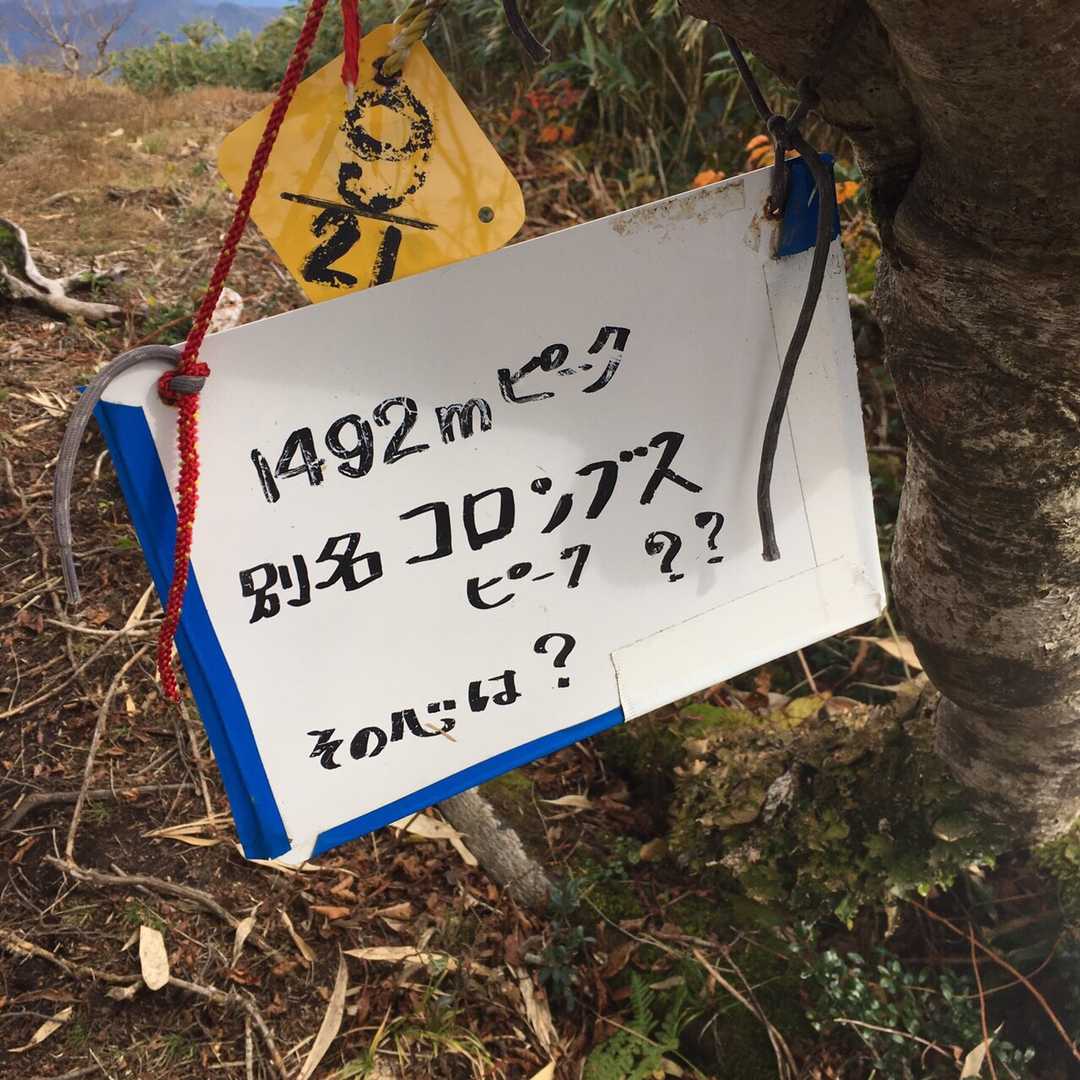 21
1492mピーク
別名 コロンブス
ピーク ??
その心は?